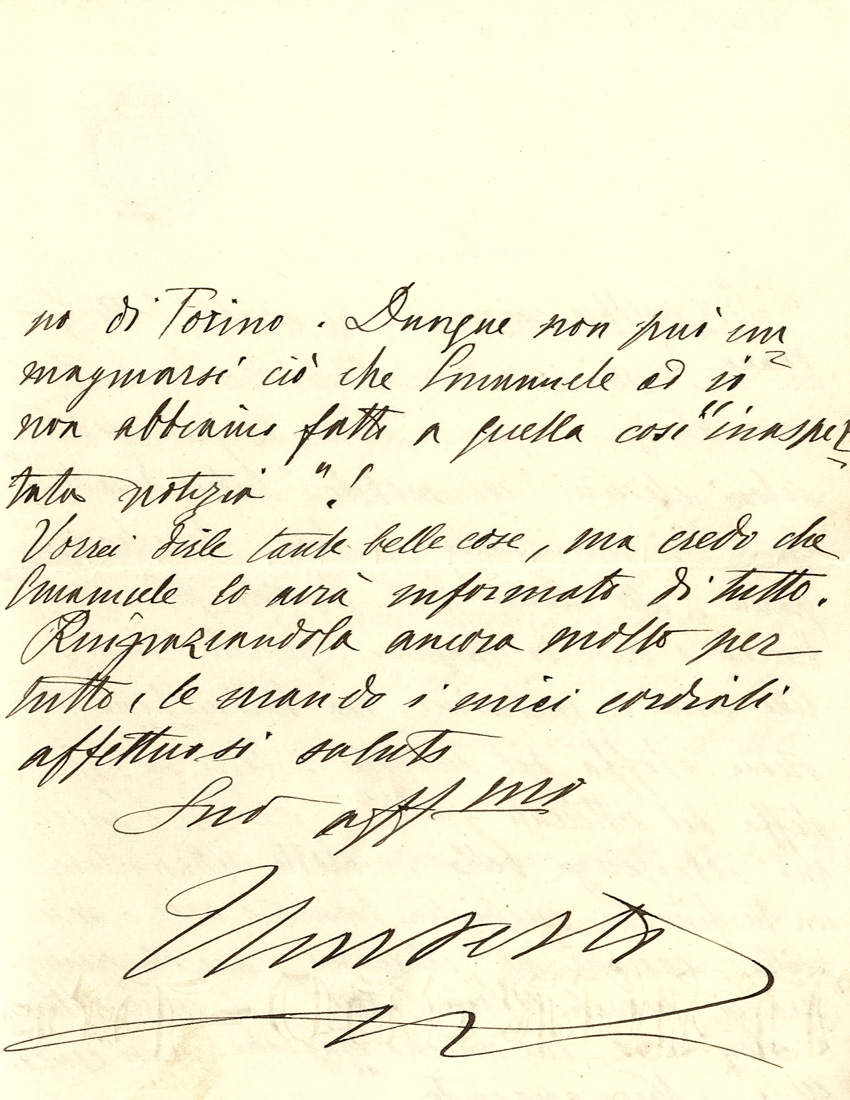 no di Torino. Dunque non può im
maginarsi ciò che Emanuele ed io
non abbiamo fatto a quella così "inaspet
tata notizia"!
Vorrei dirle tante belle cose, ma credo che
Emanuele lo avrà informato di tutto.
Ringraziandola ancora molto per
tutto, le mando i miei cordiali
affettuosi saluti
Suo aff.mo
Umberto